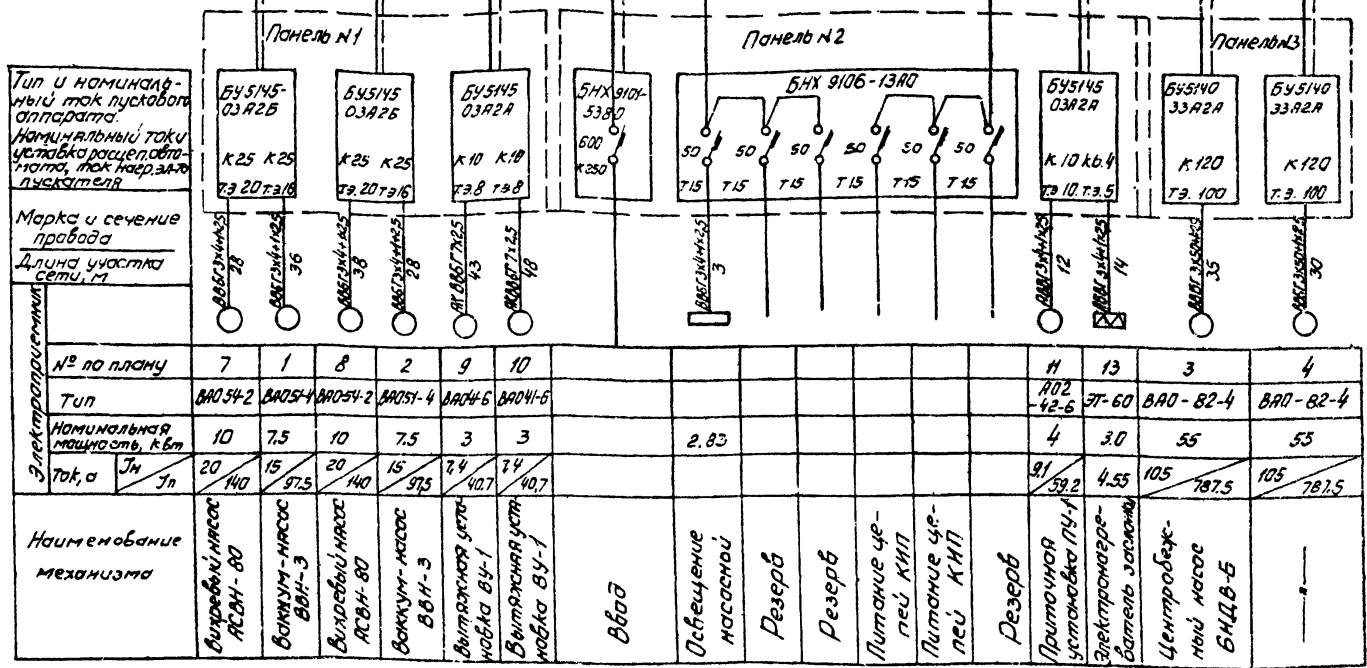 Панель №1
Панель №2
Панель №3
Тип и номиналь-
ный ток пускового
аппарата.
Номинальный ток и
уставка расцеп. авто-
мата, ток нагр. эл-та
пускателя
БУ5145-
03А2Б
К25 К25
Т.Э.20 Т.Э.16
БУ5145
03А2Б
К25 К25
Т.Э.20 Т.Э.16
БУ5145
03А2А
К10 К10
Т.Э.8 Т.Э.8
БНХ 9101-
53В0
600
К250
БНХ 9106-13А0
50 50 50 50 50 50
Т15 Т15 Т15 Т15 Т15 Т15
БУ5145
03А2А
К.10 К6.4
Т.Э.10 Т.Э.5
БУ5140
33А2А
К120
Т.Э.100
БУ5140
33А2А
К120
Т.Э.100
Марка и сечение
провода
Длина участка
сети, м
ВВБГ3х4+1х2,5
28
ВВБГ3х4+1х2,5
36
ВВБГ3х4+1х2,5
38
ВВБГ3х4+1х2,5
28
АКВВБГ7х2,5
43
АКВВБГ7х2,5
48
ВВБГ3х4+1х2,5
3
АВВГ3х4+1х2,5
12
АВВГ3х4+1х2,5
14
35
30
Электроприемник
№ по плану 7 1 8 2 9 10 11 13 3 4
Тип ВАО54-2 ВАО51-4 ВАО-54-2 ВАО51-4 ВАО41-6 ВАО41-6 АО2 -42-6 ЭТ-60 ВАО-82-4 ВАО-82-4
Номинальная
мощность, квт 10 7.5 10 7.5 3 3 2.83 4 3.0 55 55
Ток, а Iн/Iп 20/140 15/97.5 20/140 15/97.5 7,4/40.7 7.4/40,7 9.1/59.2 4.55 105/787.5 105/787.5
Наименование
механизма
Вихревый насос
АСВН-80
Вакуум-насос
ВВН-3
Вихревый насос
АСВН-80
Вакуум-насос
ВВН-3
Вытяжная уста-
новка ВУ-1
Вытяжная уста
новка ВУ-1
Ввод
Освещение
насосной
Резерв
Резерв
Питание це-
пей КИП
Питание це-
пей КИП
Резерв
Приточная
установка ПУ-1
Электронагре-
ватель заслонки
Центробеж-
ный насос
6НДВ-Б
—"—